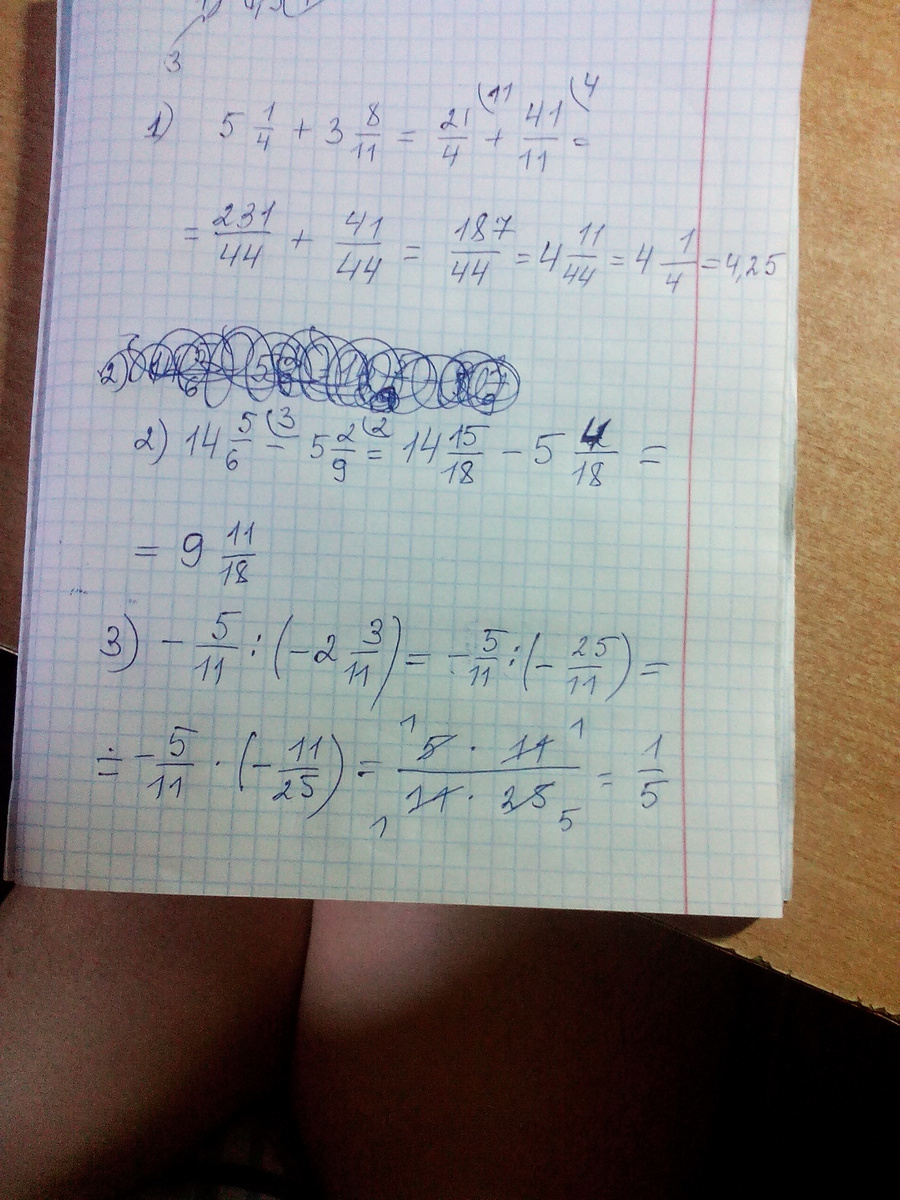 3
1) 5 1/4 + 3 8/11 = 21/4 (11 + 41/11 (4 =
= 231/44 + 41/44 = 187/44 = 4 11/44 = 4 1/4 = 4,25
2) 14 5/6 (3 - 5 2/9 (2 = 14 15/18 - 5 4/18 =
= 9 11/18
3) - 5/11 : (-2 3/11) = - 5/11 : (- 25/11) =
= - 5/11 · (- 11/25) = 1 5 · 11 1 / 1 11 · 25 5 = 1/5